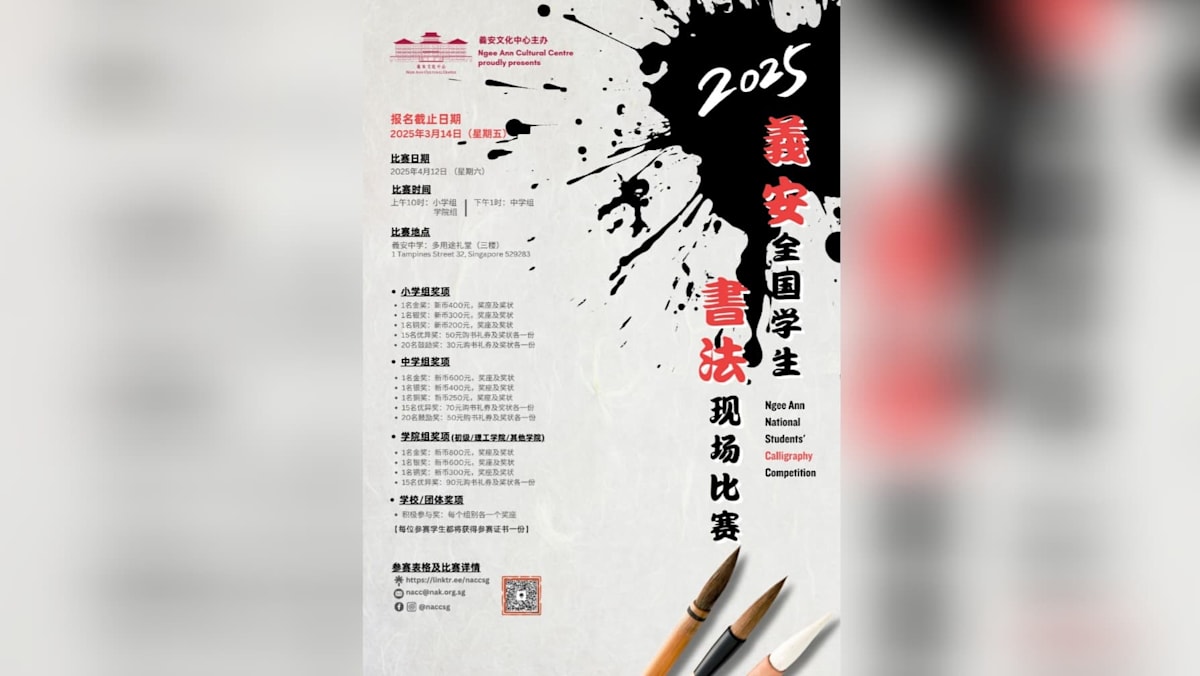 義安文化中心主办
Ngee Ann Cultural Centre
proudly presents
義安文化中心
2025
義安全国学生
書法现场比赛
Ngee Ann
National
Students'
Calligraphy
Competition
报名截止日期
2025年3月14日（星期五）
比赛日期
2025年4月12日（星期六）
比赛时间
上午10时：小学组 | 下午1时：中学组
学院组
比赛地点
義安中学：多用途礼堂（三楼）
1 Tampines Street 32, Singapore 529283
• 小学组奖项
• 1名金奖：新币400元，奖座及奖状
• 1名银奖：新币300元，奖座及奖状
• 1名铜奖：新币200元，奖座及奖状
• 15名优异奖：50元购书礼券及奖状各一份
• 20名鼓励奖：30元购书礼券及奖状各一份
• 中学组奖项
• 1名金奖：新币600元，奖座及奖状
• 1名银奖：新币400元，奖座及奖状
• 1名铜奖：新币250元，奖座及奖状
• 15名优异奖：70元购书礼券及奖状各一份
• 20名鼓励奖：50元购书礼券及奖状各一份
• 学院组奖项(初级/理工学院/其他学院)
• 1名金奖：新币800元，奖座及奖状
• 1名银奖：新币600元，奖座及奖状
• 1名铜奖：新币300元，奖座及奖状
• 15名优异奖：90元购书礼券及奖状各一份
• 学校/团体奖项
• 积极参与奖：每个组别各一个奖座
【每位参赛学生都将获得参赛证书一份】
参赛表格及比赛详情
https://linktr.ee/naccsg
nacc@nak.org.sg
@naccsg